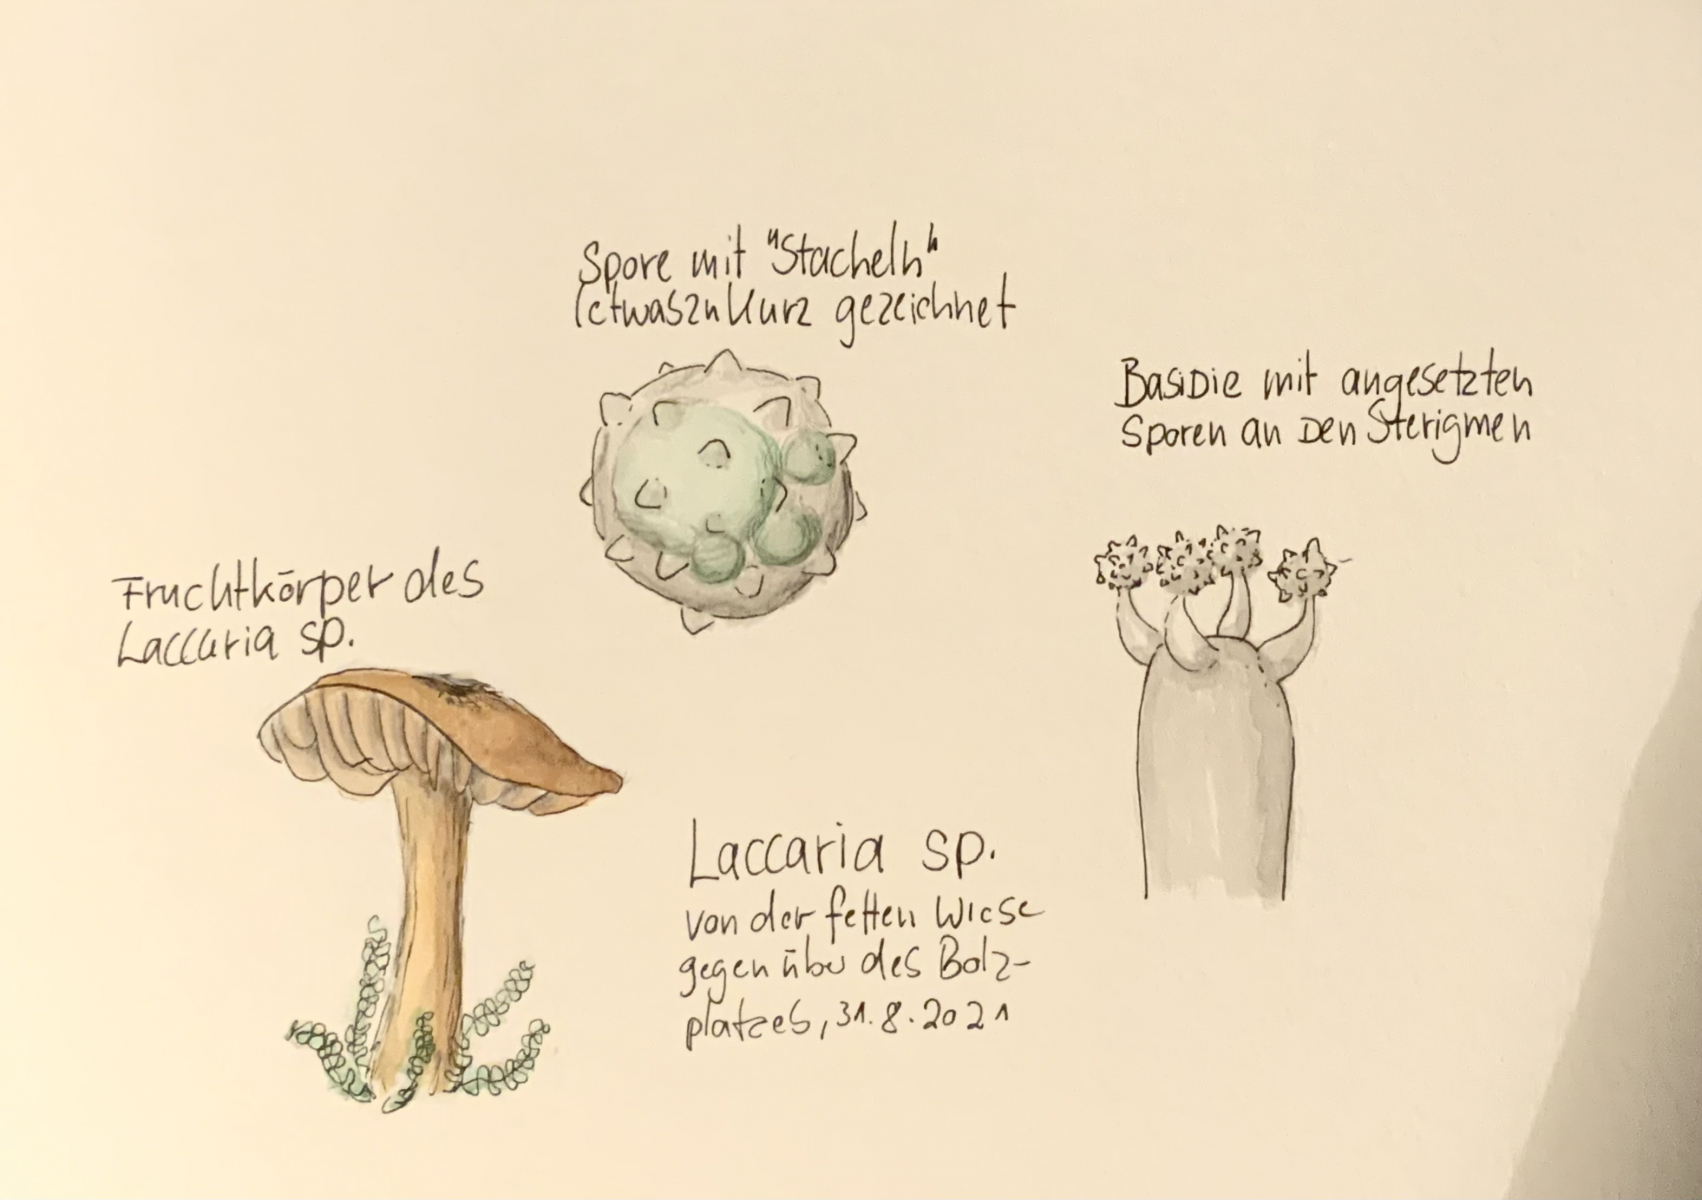 Spore mit "Stacheln"
(etwas zu kurz gezeichnet
Basidie mit angesetzten
Sporen an den Sterigmen
Fruchtkörper des
Laccaria sp.
Laccaria sp.
von der fetten Wiese
gegenüber des Bolz-
platzes, 31.8.2021